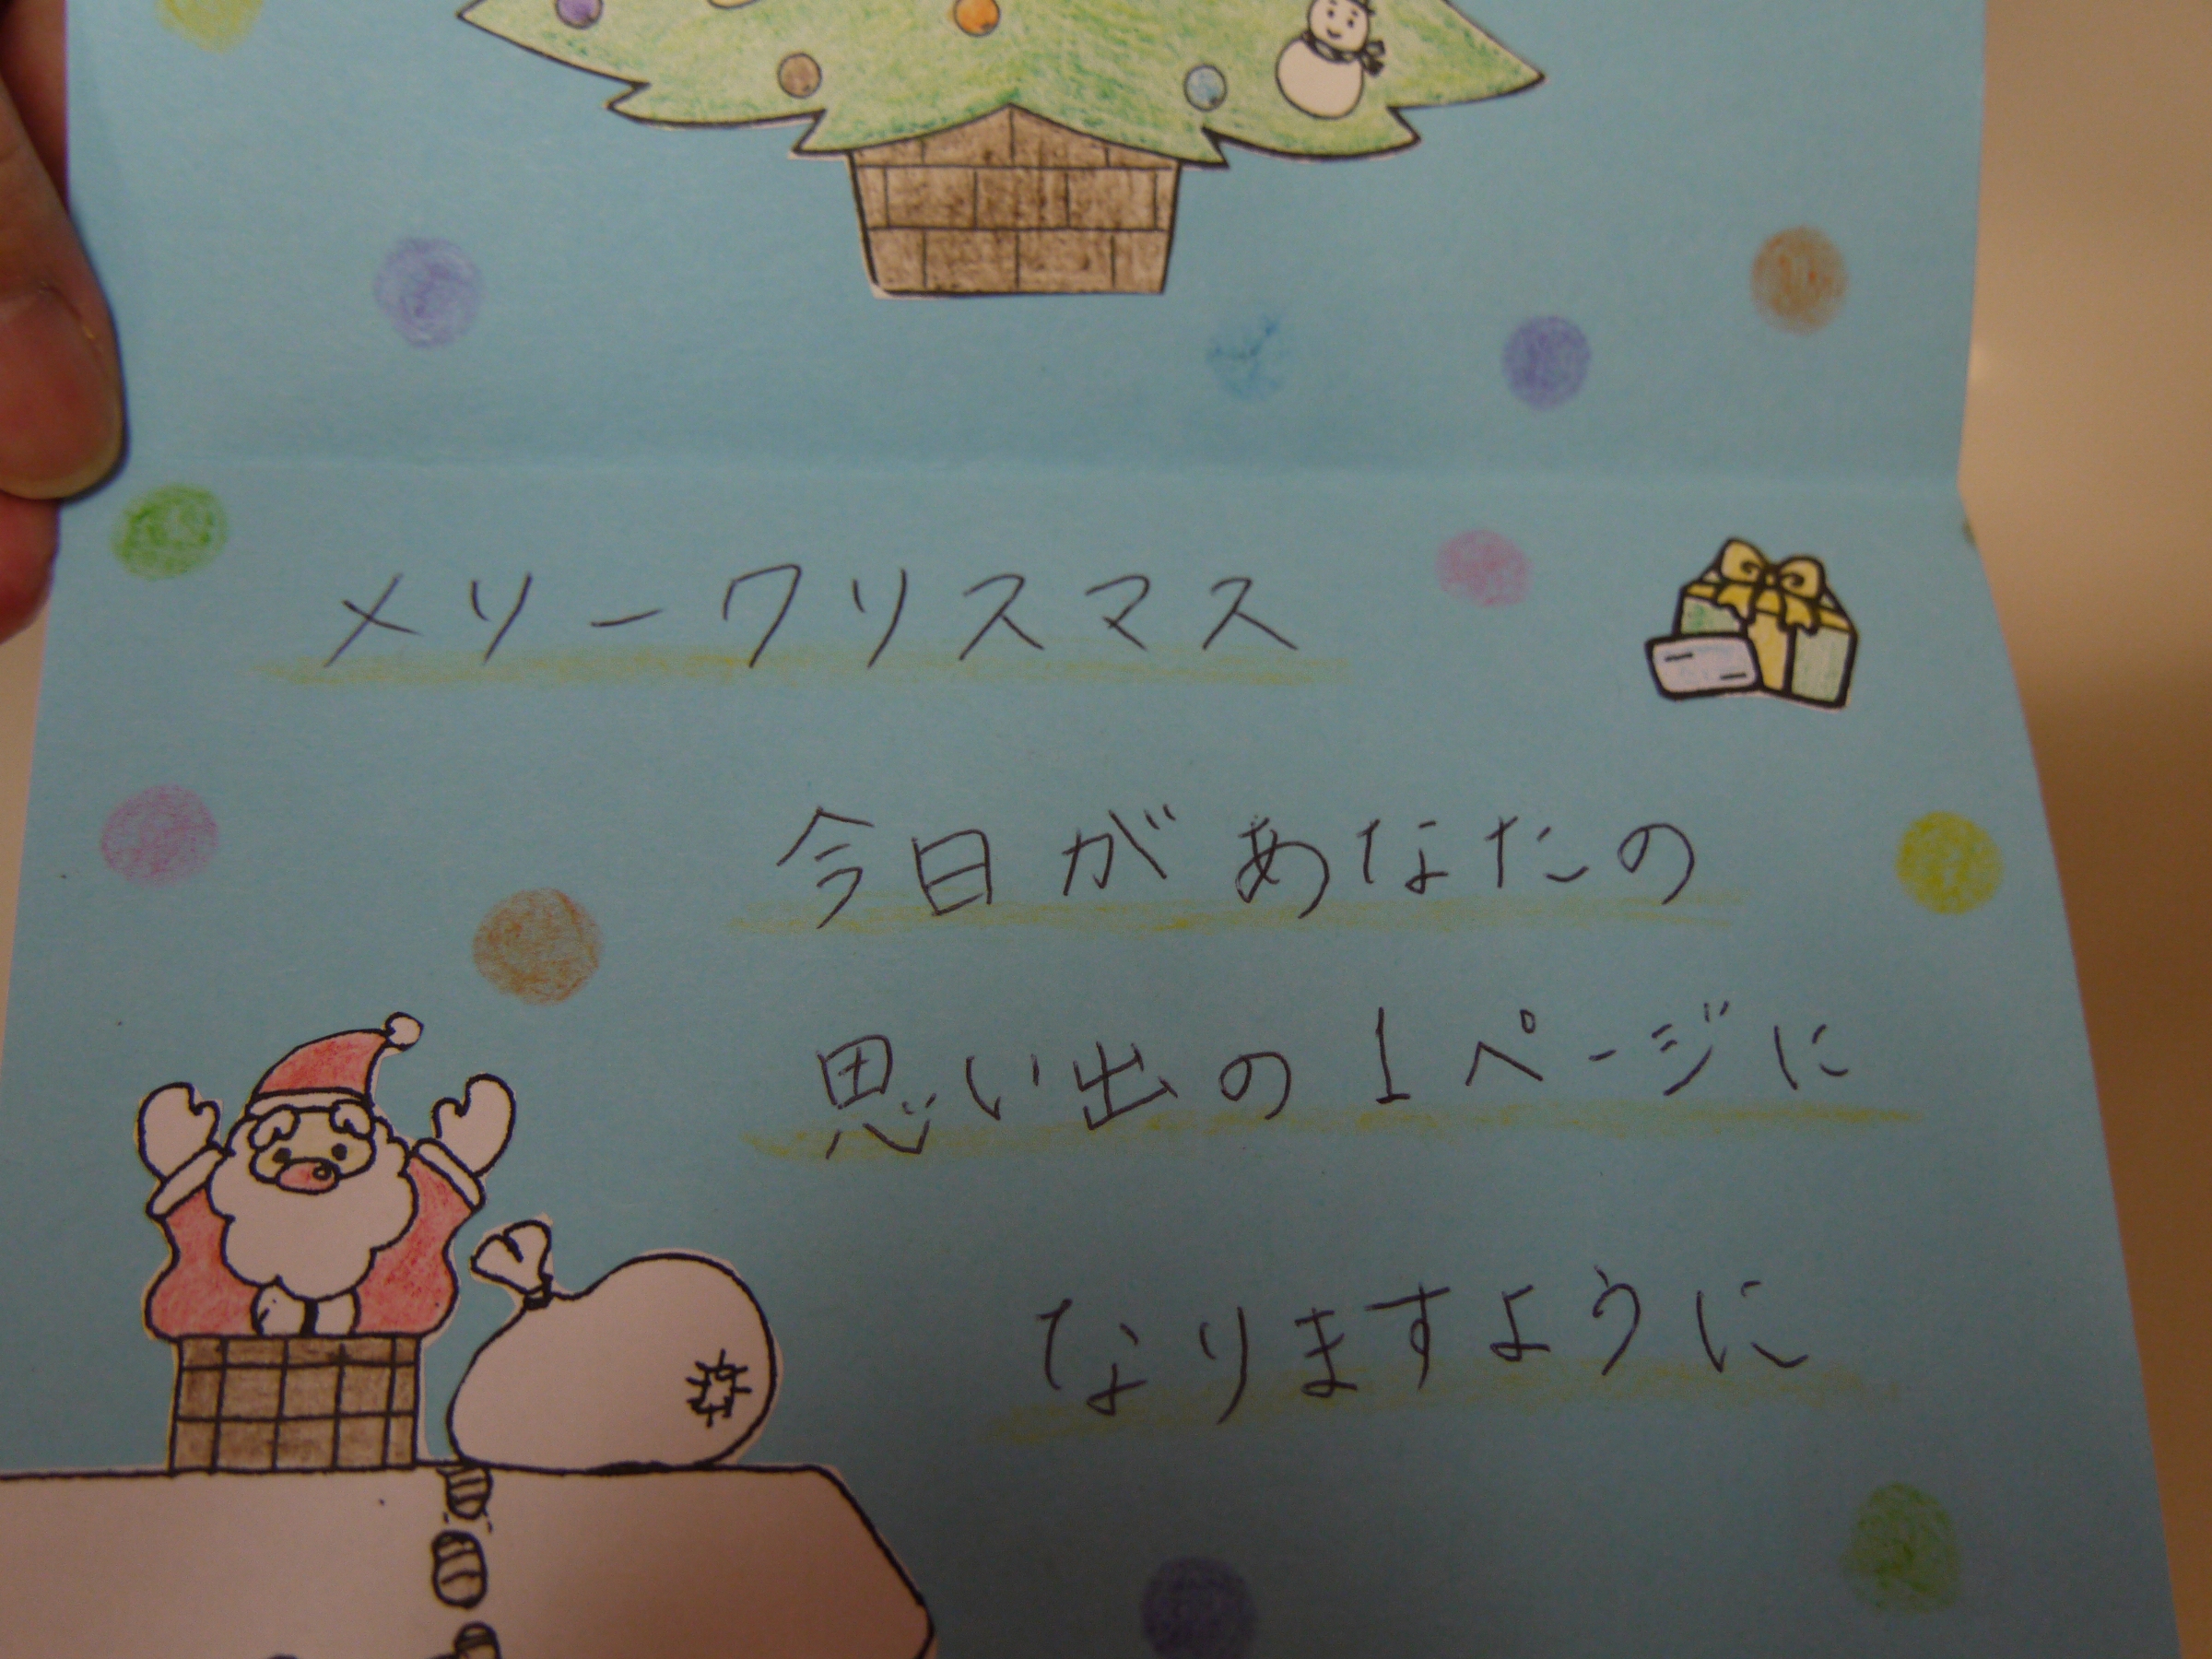 メリークリスマス
今日があなたの
思い出の1ページに
なりますように